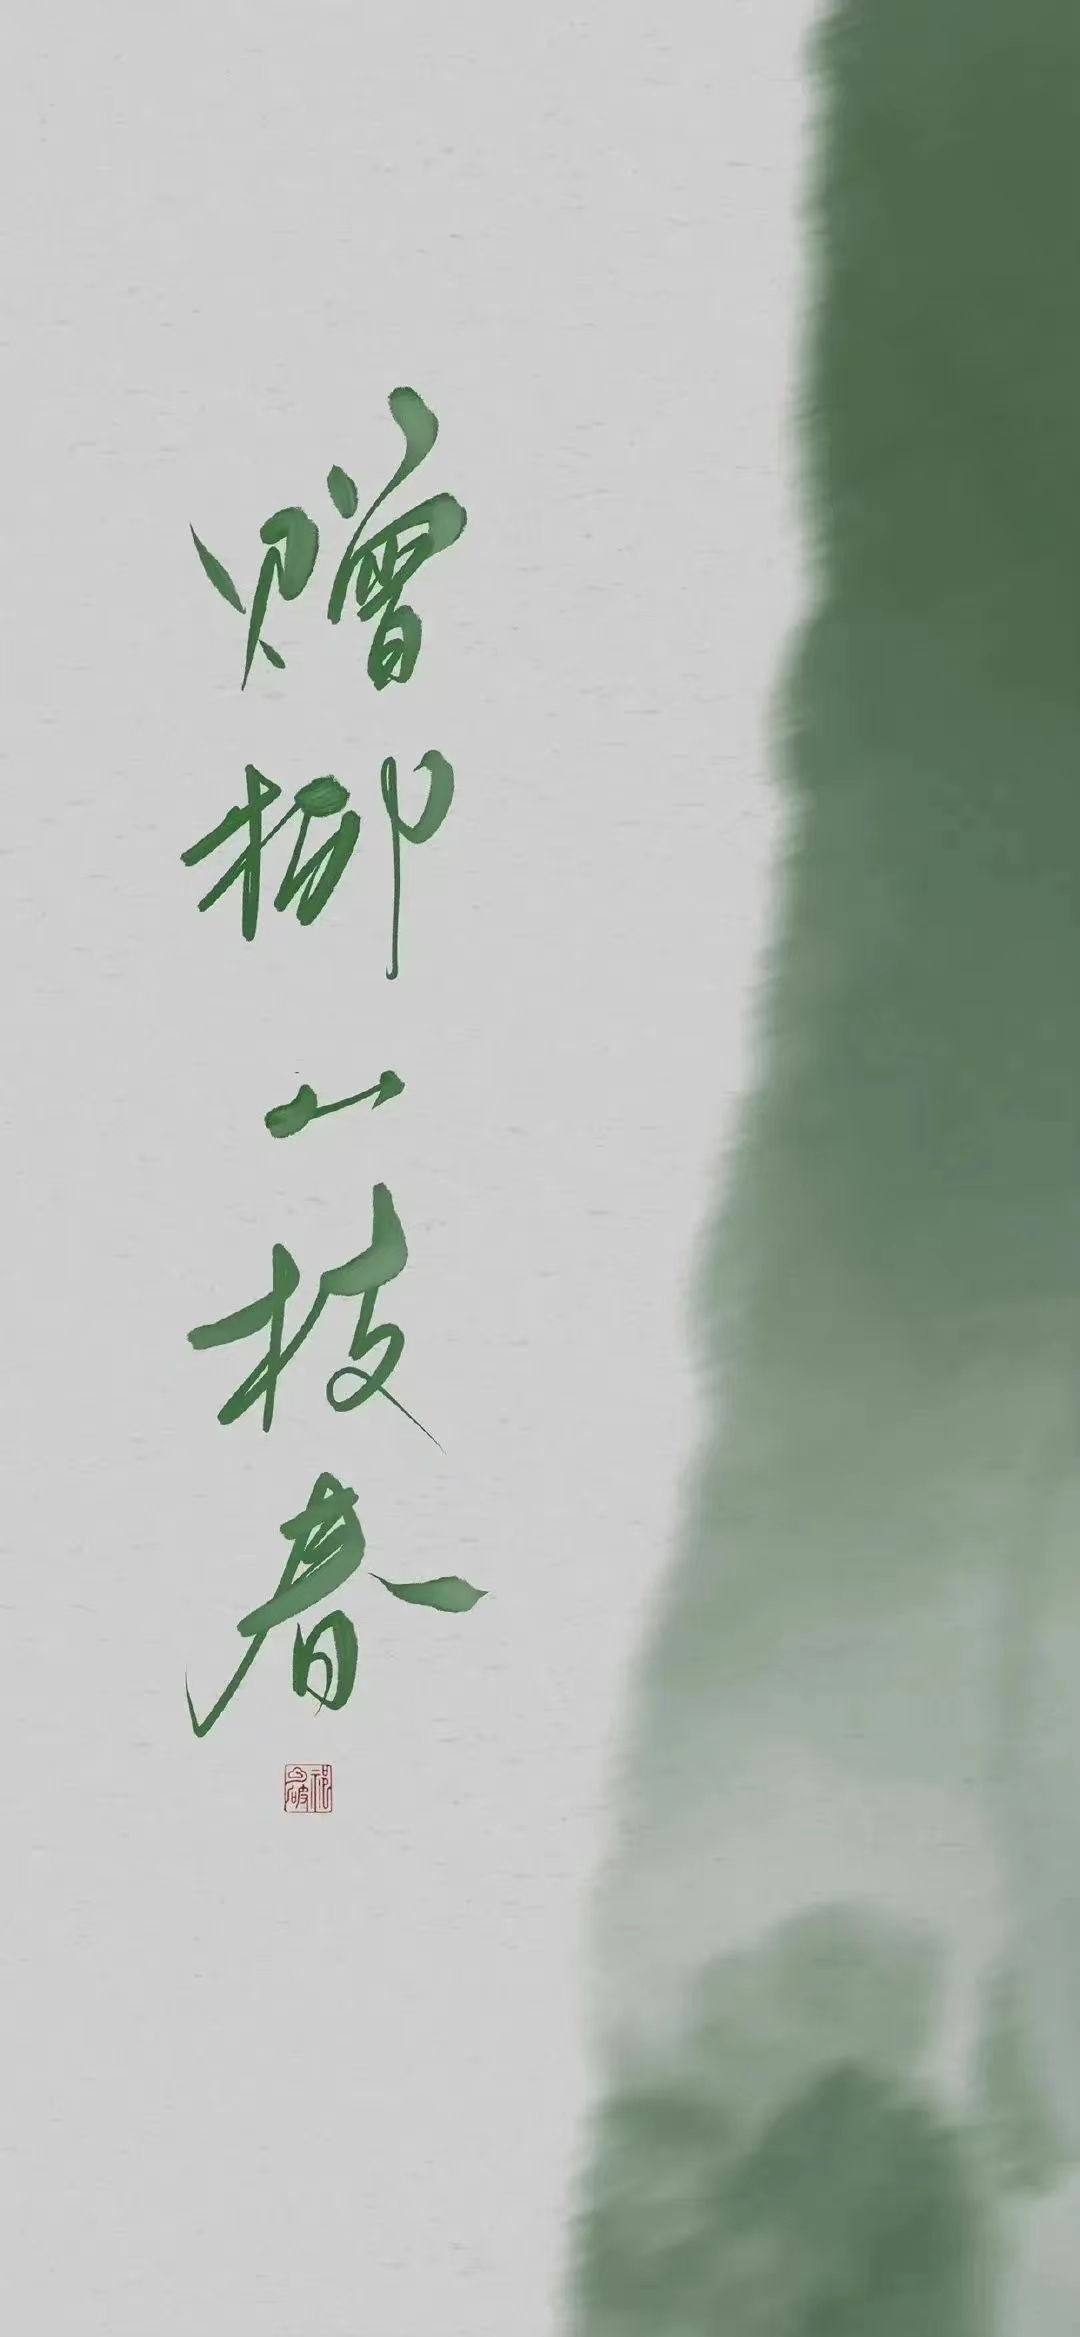 赠柳一枝春